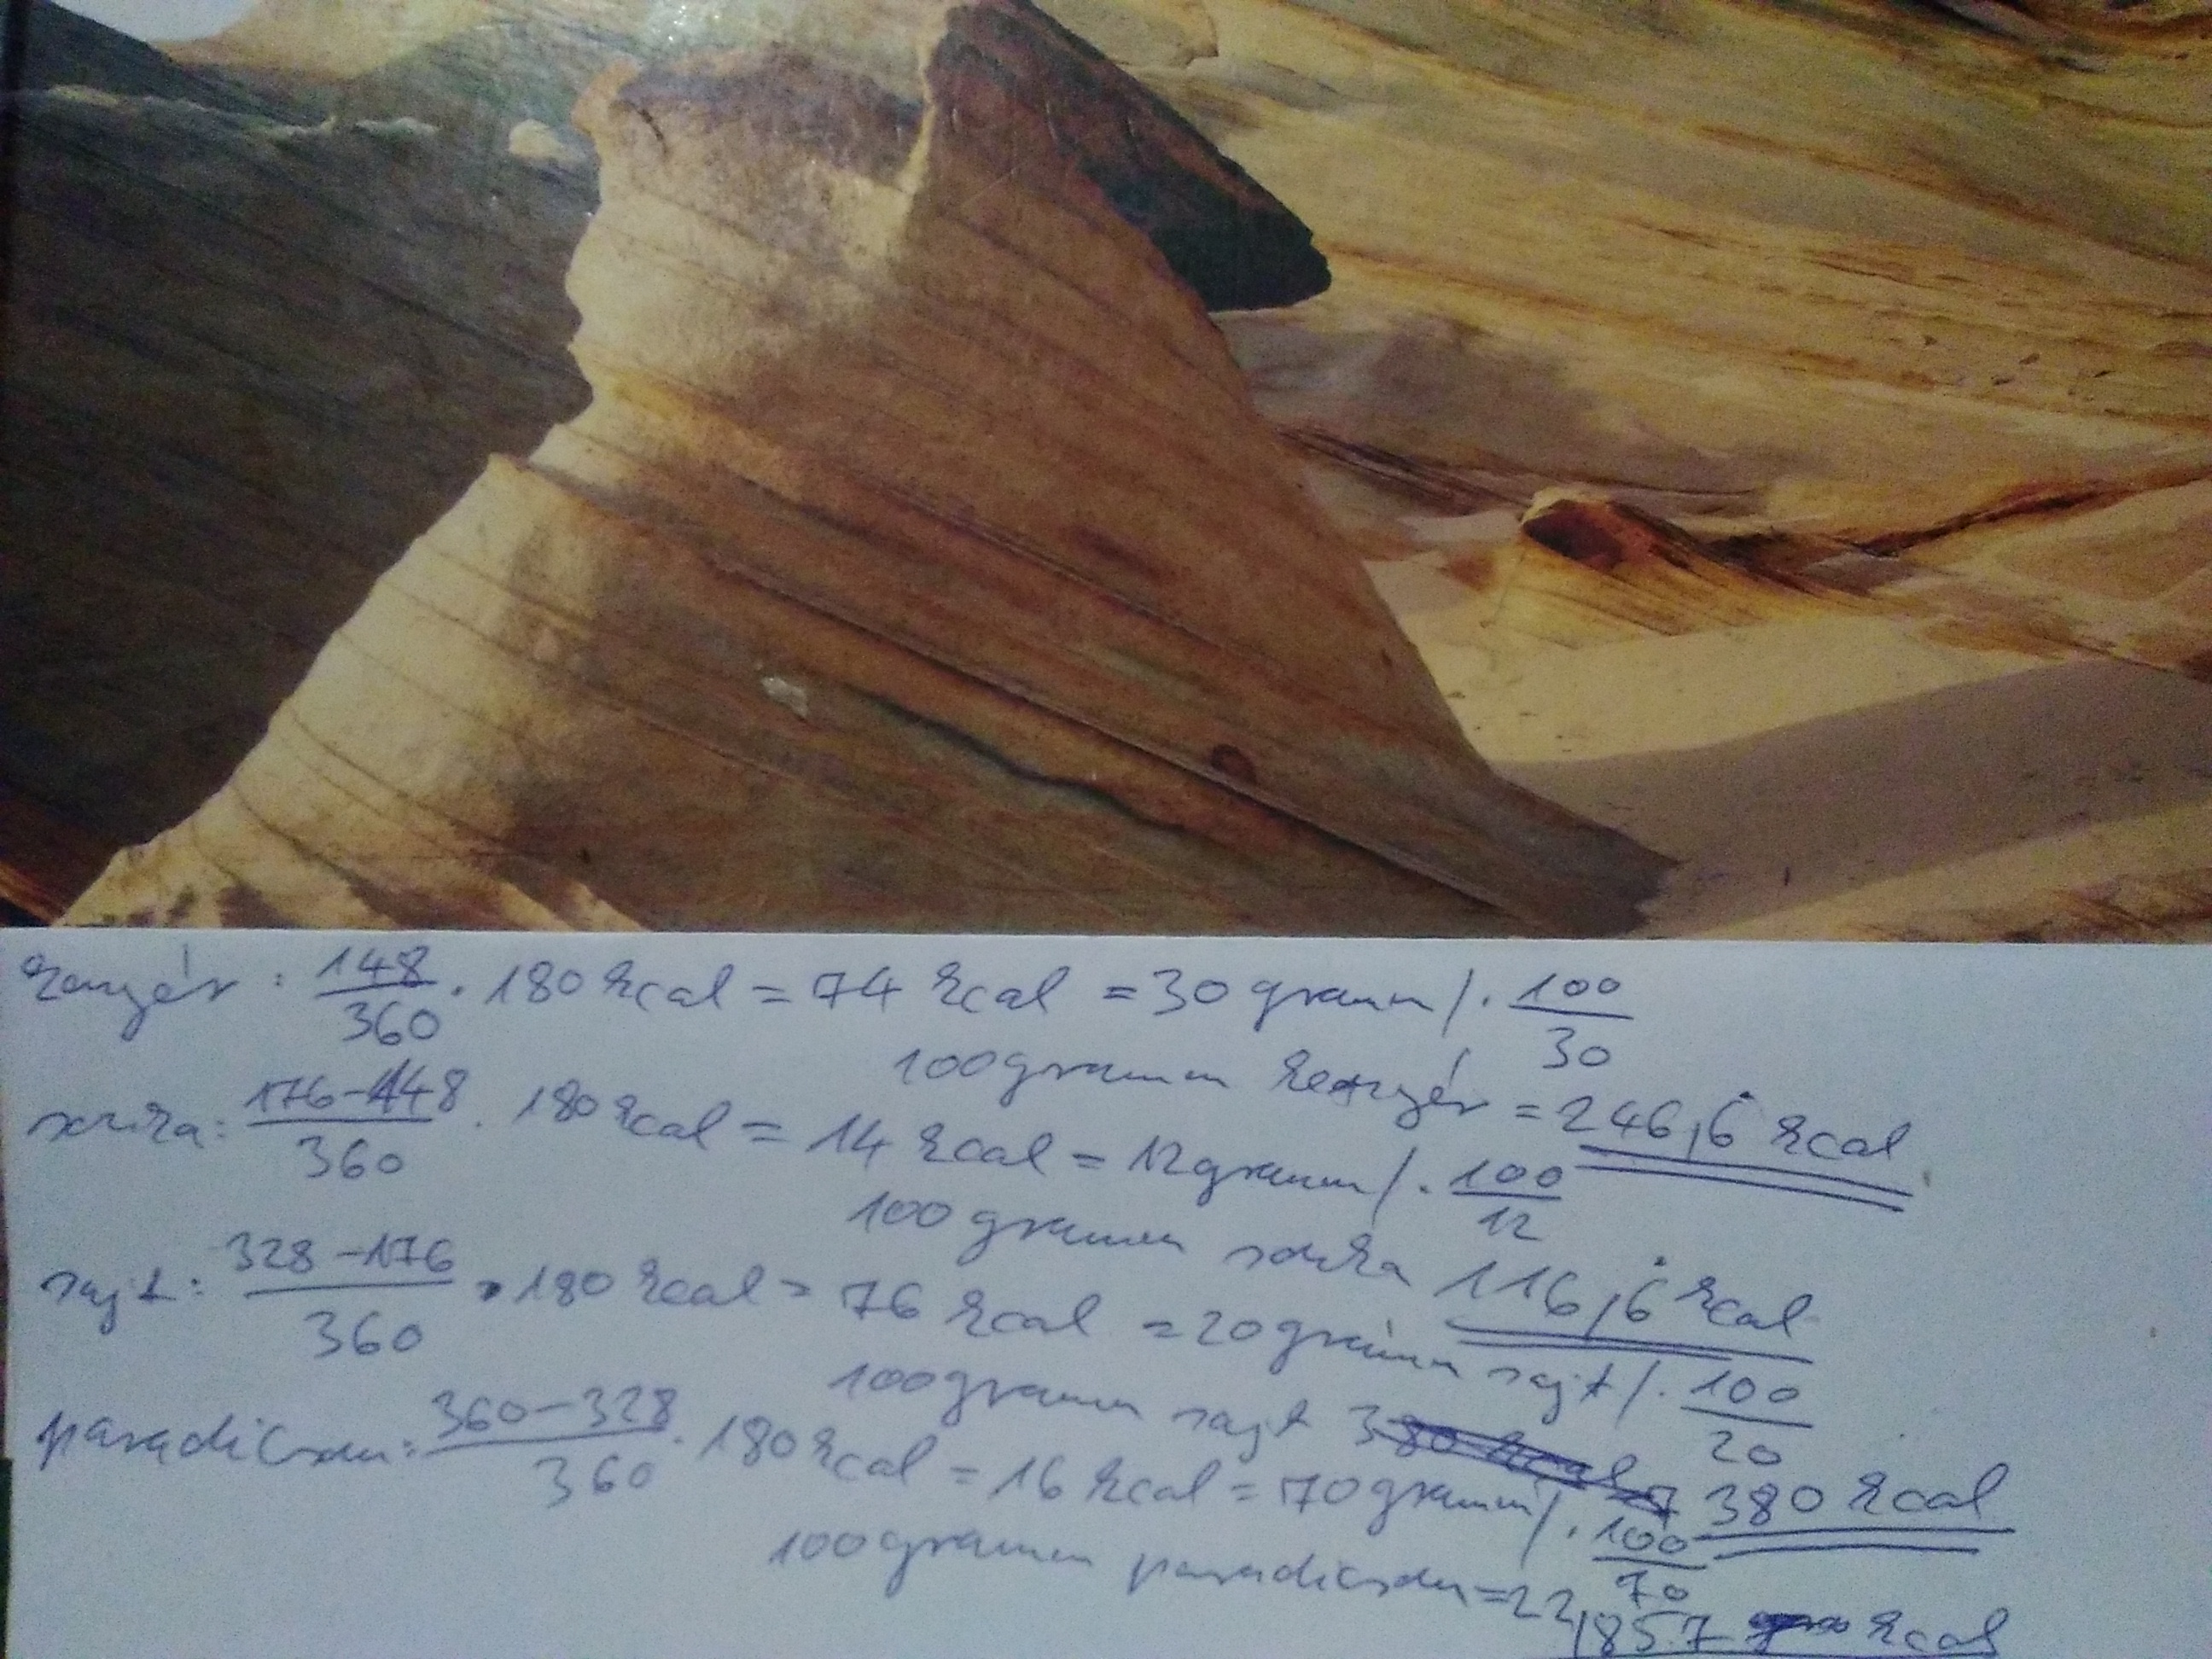 kenyér: 148/360 · 180 kcal = 74 kcal = 30 gramm /· 100/30
100 gramm kenyér = 246,6̇ kcal
sonka: 176-148/360 · 180 kcal = 14 kcal = 12 gramm /· 100/12
100 gramm sonka 116,6̇ kcal
sajt: 328-176/360 · 180 kcal = 76 kcal = 20 gramm sajt /· 100/20
100 gramm sajt 380 kcal
paradicsom: 360-328/360 · 180 kcal = 16 kcal = 70 gramm /· 100/70
100 gramm paradicsom = 22,857 kcal